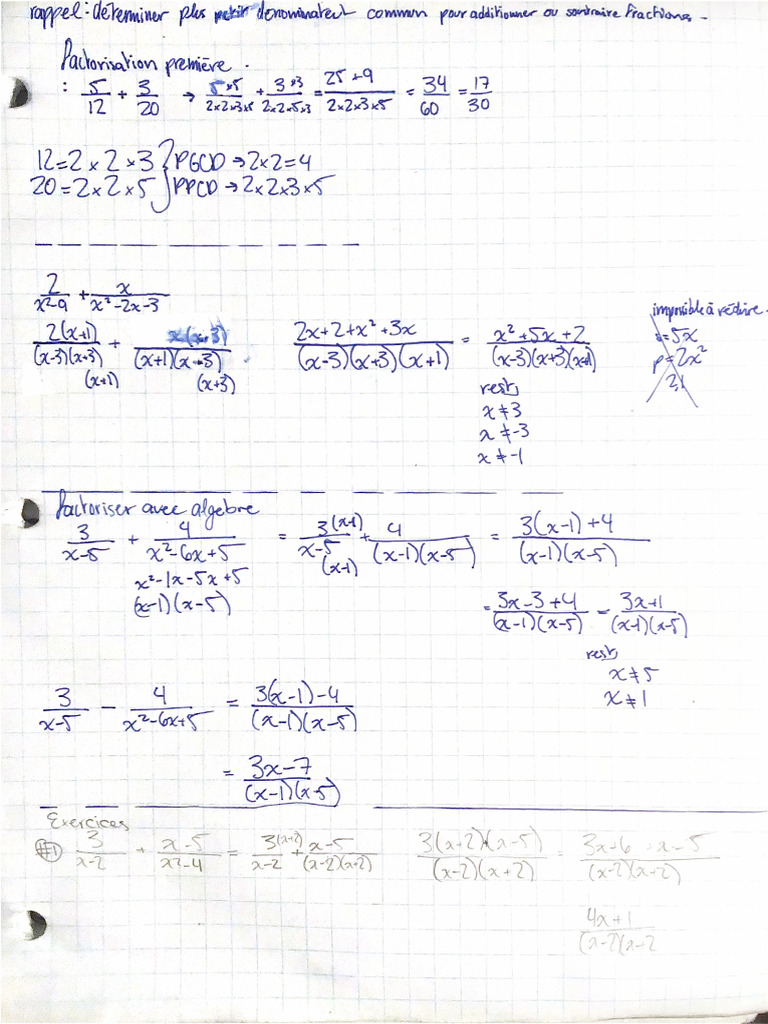 rappel: déterminer plus petit dénominateur commun pour additionner ou soustraire fractions.
Factorisation première.
: 5/12 + 3/20 → 5×5/2×2×3×5 + 3×3/2×2×5×3 = 25+9/2×2×3×5 = 34/60 = 17/30
12=2×2×3 } PGCD → 2×2=4
20=2×2×5 } PPCD → 2×2×3×5
2/x²-9 + x/x²-2x-3
2(x+1)/(x-3)(x+3)(x+1) + x(x+3)/(x+1)(x-3)(x+3) 2x+2+x²+3x/(x-3)(x+3)(x+1) = x²+5x+2/(x-3)(x+3)(x+1)
impossible à réduire.
s=5x
p=2x²
2,1
rest:
x≠3
x≠-3
x≠-1
Factoriser avec algebre
3/x-5 + 4/x²-6x+5 = 3(x-1)/x-5(x-1) + 4/(x-1)(x-5) = 3(x-1)+4/(x-1)(x-5)
x²-1x-5x+5
(x-1)(x-5)
= 3x-3+4/(x-1)(x-5) = 3x+1/(x-1)(x-5)
rest:
x≠5
x≠1
3/x-5 - 4/x²-6x+5 = 3(x-1)-4/(x-1)(x-5)
= 3x-7/(x-1)(x-5)
Exercices
#1 3/x-2 + x-5/x²-4 = 3(x+2)/x-2 + x-5/(x-2)(x+2) 3(x+2)+(x-5)/(x-2)(x+2) = 3x+6+x-5/(x-2)(x+2)
4x+1/(x-2)(x-2